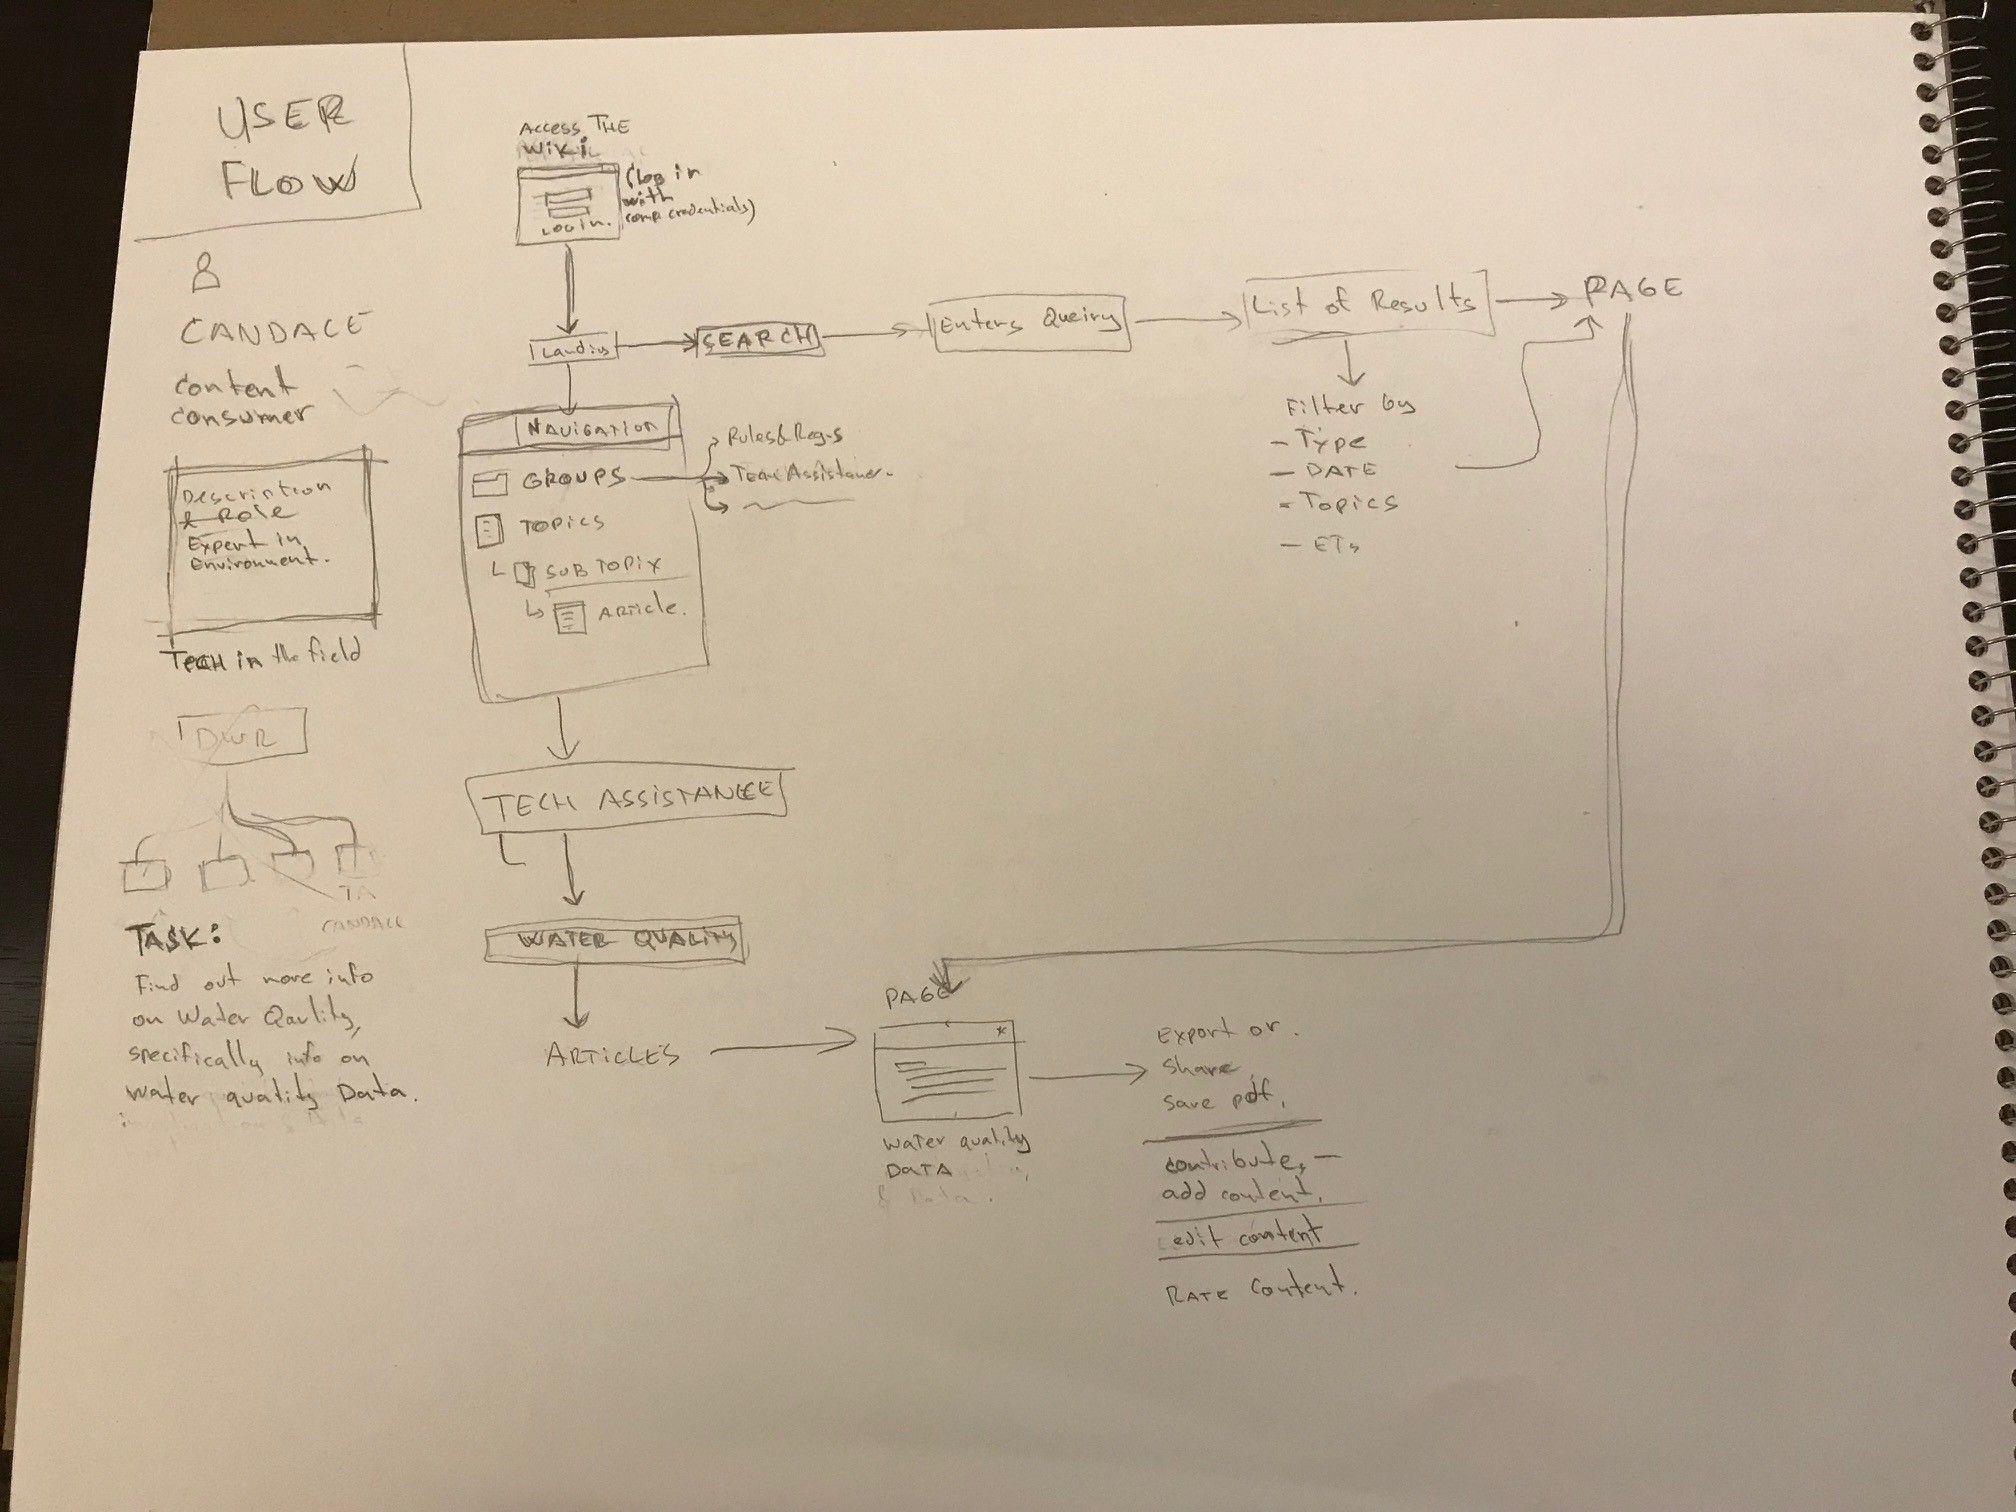 USER
FLOW
CANDACE
content
consumer
Description
& Role
Expert in
Environment.
TECH in the field
DWR
TA
CANDACE
TASK:
Find out more info
on Water Qaulity,
specifically info on
water quality Data.
Access THE
Wiki
(Log in
with
comp credentials)
LOGIN.
Landing
SEARCH
Enters Queiry
List of Results
PAGE
Filter by
- Type
- DATE
- Topics
- ETs
NAVIGATION
GROUPS
Rules&Regs
Tech Assistance.
TOPICS
SUB TOPIX
ARTicle.
TECH ASSISTANCE
WATER QUALITY
ARTICLES
PAGE
water quality
DATA
Export or.
share
save pdf.
contribute, -
add content.
edit content
RATE content.